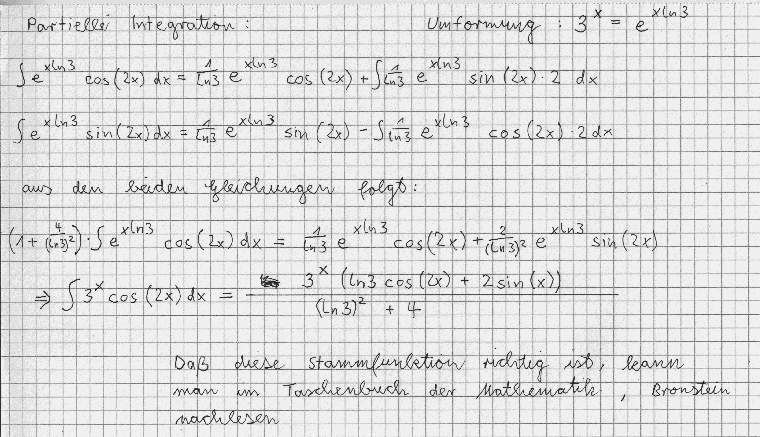 Partielle Integration: Umformung: 3^x = e^{x ln3}
∫ e^{x ln3} cos(2x) dx = 1/ln3 e^{x ln3} cos(2x) + ∫ 1/ln3 e^{x ln3} sin(2x)·2 dx
∫ e^{x ln3} sin(2x) dx = 1/ln3 e^{x ln3} sin(2x) - ∫ 1/ln3 e^{x ln3} cos(2x)·2 dx
aus den beiden Gleichungen folgt:
(1 + 4/(ln3)²)·∫ e^{x ln3} cos(2x) dx = 1/ln3 e^{x ln3} cos(2x) + 2/(ln3)² e^{x ln3} sin(2x)
⇒ ∫ 3^x cos(2x) dx = 3^x (ln3 cos(2x) + 2 sin(x)) / (ln3)² + 4
Daß diese Stammfunktion richtig ist, kann
man im Taschenbuch der Mathematik, Bronstein
nachlesen